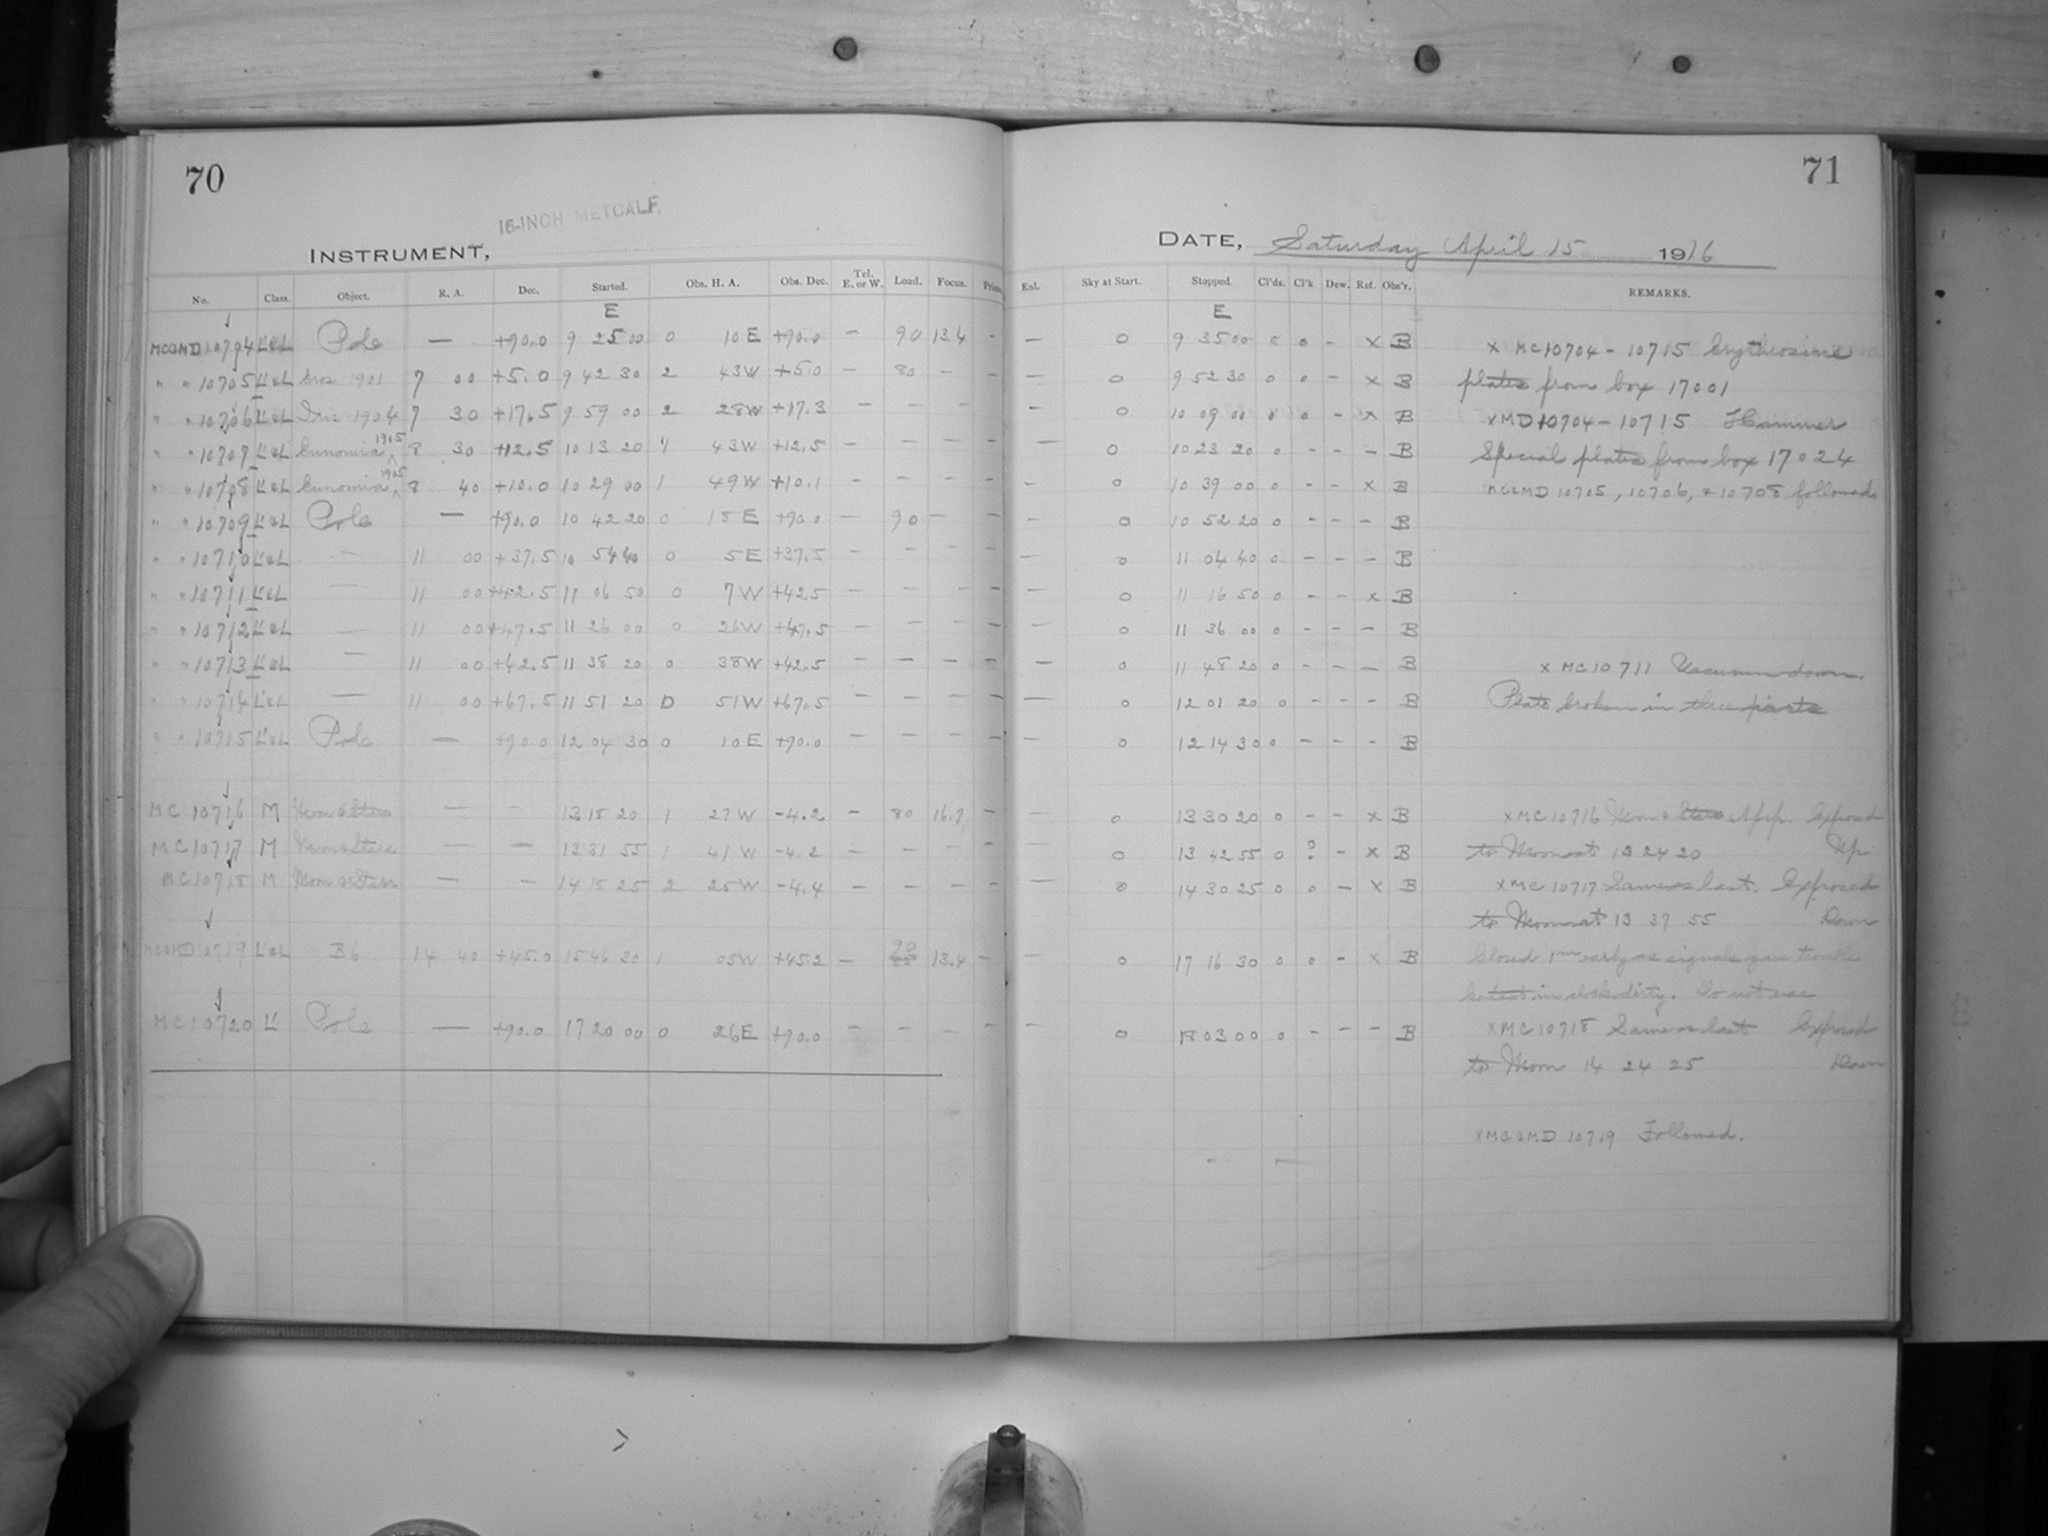 70
16-INCH METCALF,
INSTRUMENT,
No. Class. Object. R. A. Dec. Started. Obs. H. A. Obs. Dec. Tel. E. or W. Load. Focus. Prism.
E
MC&MD 10704 L'&L Pole — +90.0 9 25 00 0 10 E +90.0 — 90 13.4 -
" " 10705 L'&L Eros 1901 7 00 +5.0 9 42 30 2 43W +5.0 — 80 — —
" " 10706 L'&L Iris 1904 7 30 +17.5 9 59 00 2 28W +17.3 — — — —
" " 10707 L'&L Eunomia 1905 8 30 +12.5 10 13 20 1 43W +12.5 — — — —
" " 10708 L'&L Eunomia 1905 8 40 +10.0 10 29 00 1 49W +10.1 — — — —
" " 10709 L'&L Pole — +90.0 10 42 20 0 18 E +90.0 — 90 — —
" " 10710 L'&L — 11 00 +37.5 10 54 40 0 5E +37.5 — — — —
" " 10711 L'&L — 11 00 +42.5 11 06 50 0 7W +42.5 — — — —
" " 10712 L'&L — 11 00 +47.5 11 26 00 0 26W +47.5 — — — —
" " 10713 L'&L — 11 00 +42.5 11 38 20 0 38W +42.5 — — — —
" " 10714 L'&L — 11 00 +67.5 11 51 20 0 51W +67.5 — — — —
" " 10715 L'&L Pole — +90.0 12 04 30 0 10E +90.0 — — — —
MC 10716 M Moon & Stars — — 13 15 20 1 27W -4.2 — 80 16.7 —
MC 10717 M Moon & Stars — — 13 31 55 1 41W -4.2 — — — —
MC 10718 M Moon & Stars — — 14 15 25 2 25W -4.4 — — — —
MC&MD 10719 L'&L B6 14 40 +45.0 15 46 30 1 05W +45.2 — 90 13.4 —
MC 10720 L' Pole — +90.0 17 20 00 0 26E +90.0 — — — —
71
DATE, Saturday April 15 1916
Enl. Sky at Start. Stopped. Cl'ds. Cl'k Dew. Ref. Obs'r. REMARKS.
E
— 0 9 35 00 0 0 - x B x MC10704 - 10715 Erythrosine
— 0 9 52 30 0 0 - x B plates from box 17001
— 0 10 09 00 0 0 - x B x MD10704 - 10715 Hammer
— 0 10 23 20 0 - - - B Special plates from box 17024
- 0 10 39 00 0 - - x B MC&MD 10705, 10706, & 10708 followed
— 0 10 52 20 0 - - - B
— 0 11 04 40 0 - - - B
— 0 11 16 50 0 - - x B
— 0 11 36 00 0 - - - B
— 0 11 48 20 0 - - - B x MC10711 Vacuum down.
— 0 12 01 20 0 - - - B Plate broken in three parts
— 0 12 14 30 0 - - - B
— 0 13 30 20 0 - - x B x MC10716 Moon & Stars App. Exposed
— 0 13 42 55 0 ? - x B to Moon at 13 24 20 Up
— 0 14 30 25 0 0 - x B x MC 10717 Same as last. Exposed
to Moon at 13 37 55 Down
— 0 17 16 30 0 0 - x B Closed 1m early as signals gave trouble
in clock dirty. Do not use
— 0 18 03 00 0 - - - B x MC10718 Same as last Exposed
to Moon 14 24 25 Down
x MC&MD 10719 Followed.